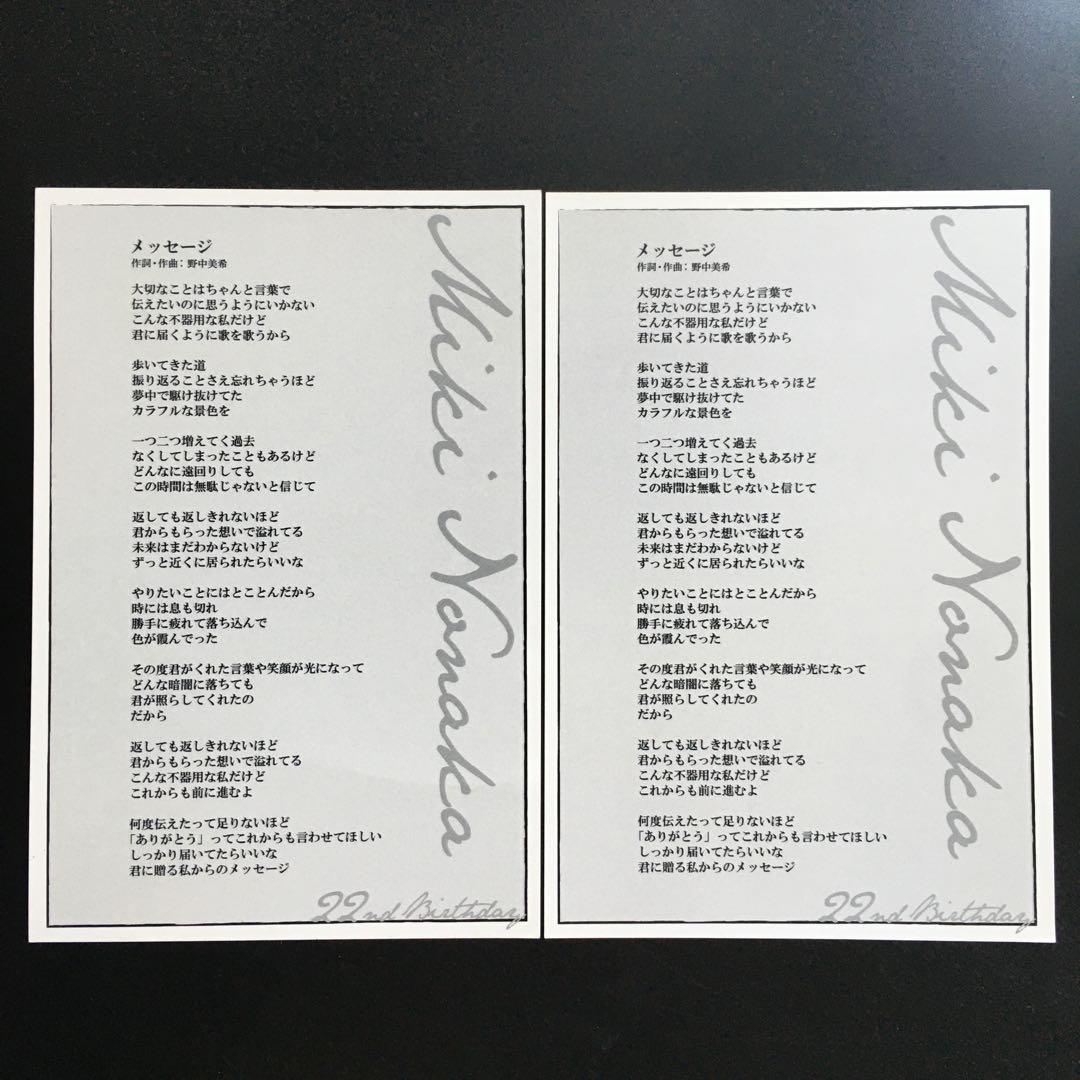 メッセージ
作詞・作曲：野中美希
大切なことはちゃんと言葉で
伝えたいのに思うようにいかない
こんな不器用な私だけど
君に届くように歌を歌うから
歩いてきた道
振り返ることさえ忘れちゃうほど
夢中で駆け抜けてた
カラフルな景色を
一つ二つ増えてく過去
なくしてしまったこともあるけど
どんなに遠回りしても
この時間は無駄じゃないと信じて
返しても返しきれないほど
君からもらった想いで溢れてる
未来はまだわからないけど
ずっと近くに居られたらいいな
やりたいことにはとことんだから
時には息も切れ
勝手に疲れて落ち込んで
色が霞んでった
その度君がくれた言葉や笑顔が光になって
どんな暗闇に落ちても
君が照らしてくれたの
だから
返しても返しきれないほど
君からもらった想いで溢れてる
こんな不器用な私だけど
これからも前に進むよ
何度伝えたって足りないほど
「ありがとう」ってこれからも言わせてほしい
しっかり届いてたらいいな
君に贈る私からのメッセージ
Miki Nonaka
22nd Birthday
メッセージ
作詞・作曲：野中美希
大切なことはちゃんと言葉で
伝えたいのに思うようにいかない
こんな不器用な私だけど
君に届くように歌を歌うから
歩いてきた道
振り返ることさえ忘れちゃうほど
夢中で駆け抜けてた
カラフルな景色を
一つ二つ増えてく過去
なくしてしまったこともあるけど
どんなに遠回りしても
この時間は無駄じゃないと信じて
返しても返しきれないほど
君からもらった想いで溢れてる
未来はまだわからないけど
ずっと近くに居られたらいいな
やりたいことにはとことんだから
時には息も切れ
勝手に疲れて落ち込んで
色が霞んでった
その度君がくれた言葉や笑顔が光になって
どんな暗闇に落ちても
君が照らしてくれたの
だから
返しても返しきれないほど
君からもらった想いで溢れてる
こんな不器用な私だけど
これからも前に進むよ
何度伝えたって足りないほど
「ありがとう」ってこれからも言わせてほしい
しっかり届いてたらいいな
君に贈る私からのメッセージ
Miki Nonaka
22nd Birthday